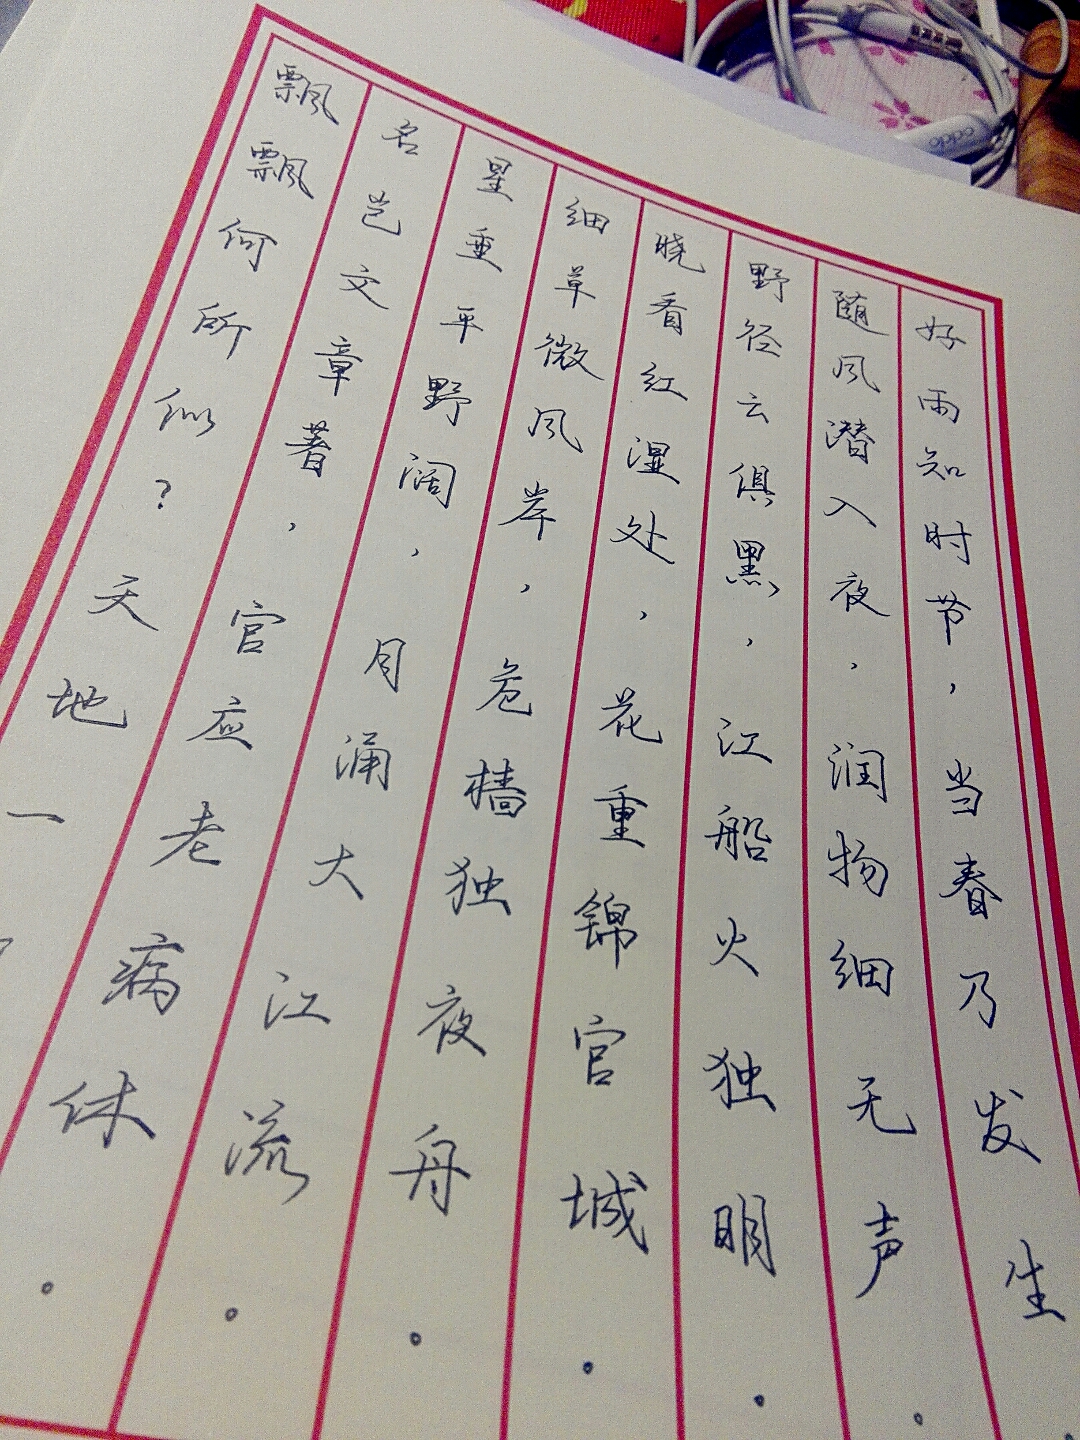 好雨知时节，当春乃发生。
随风潜入夜，润物细无声。
野径云俱黑，江船火独明。
晓看红湿处，花重锦官城。
细草微风岸，危樯独夜舟。
星垂平野阔，月涌大江流。
名岂文章著，官应老病休。
飘飘何所似？天地一